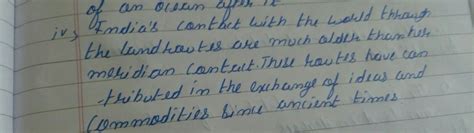 of an ocean after it
iv, India's contact with the world through
the land routes are much older than her
meridian contact. These routes have con
-tributed in the exchange of ideas and
commodities since ancient times